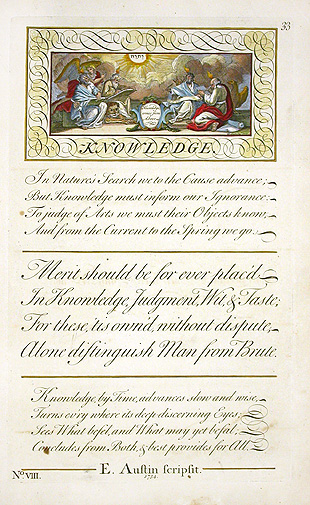 33
KNOWLEDGE
In Nature's Search we to the Cause advance;
But Knowledge must inform our Ignorance:
To judge of Acts we must their Objects know,
And from the Current to the Spring we go.
Merit should be for ever plac'd
In Knowledge, Judgment, Wit, & Taste;
For these, 'tis own'd, without dispute,
Alone distinguish Man from Brute.
Knowledge, by Time, advances slow and wise,
Turns ev'ry where its deep discerning Eyes;
Sees What befel, and What may yet befal,
Concludes from Both, & best provides for All.
No. VIII.
E. Austin scripsit.